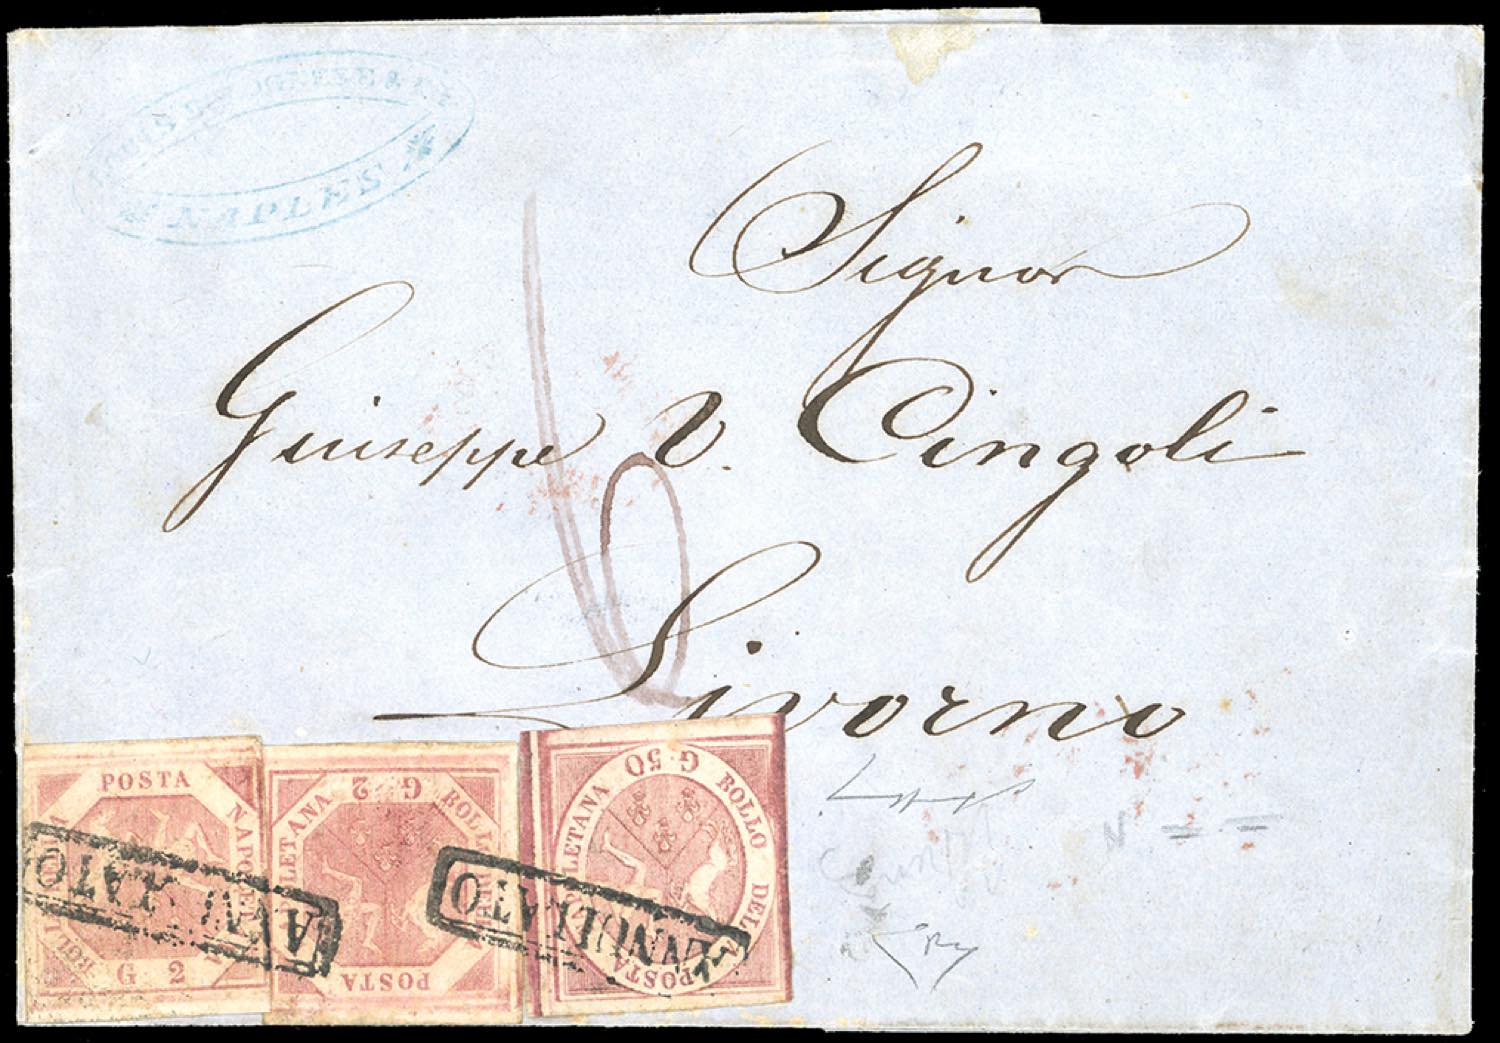 NAPLES
Signor
Giuseppe V. Cingoli
Livorno
POSTA NAPOLETANA BOLLO G 2
ANNULLATO
G 2 BOLLO POSTA
G. 50 BOLLO DELLA POSTA NAPOLETANA
ANNULLATO